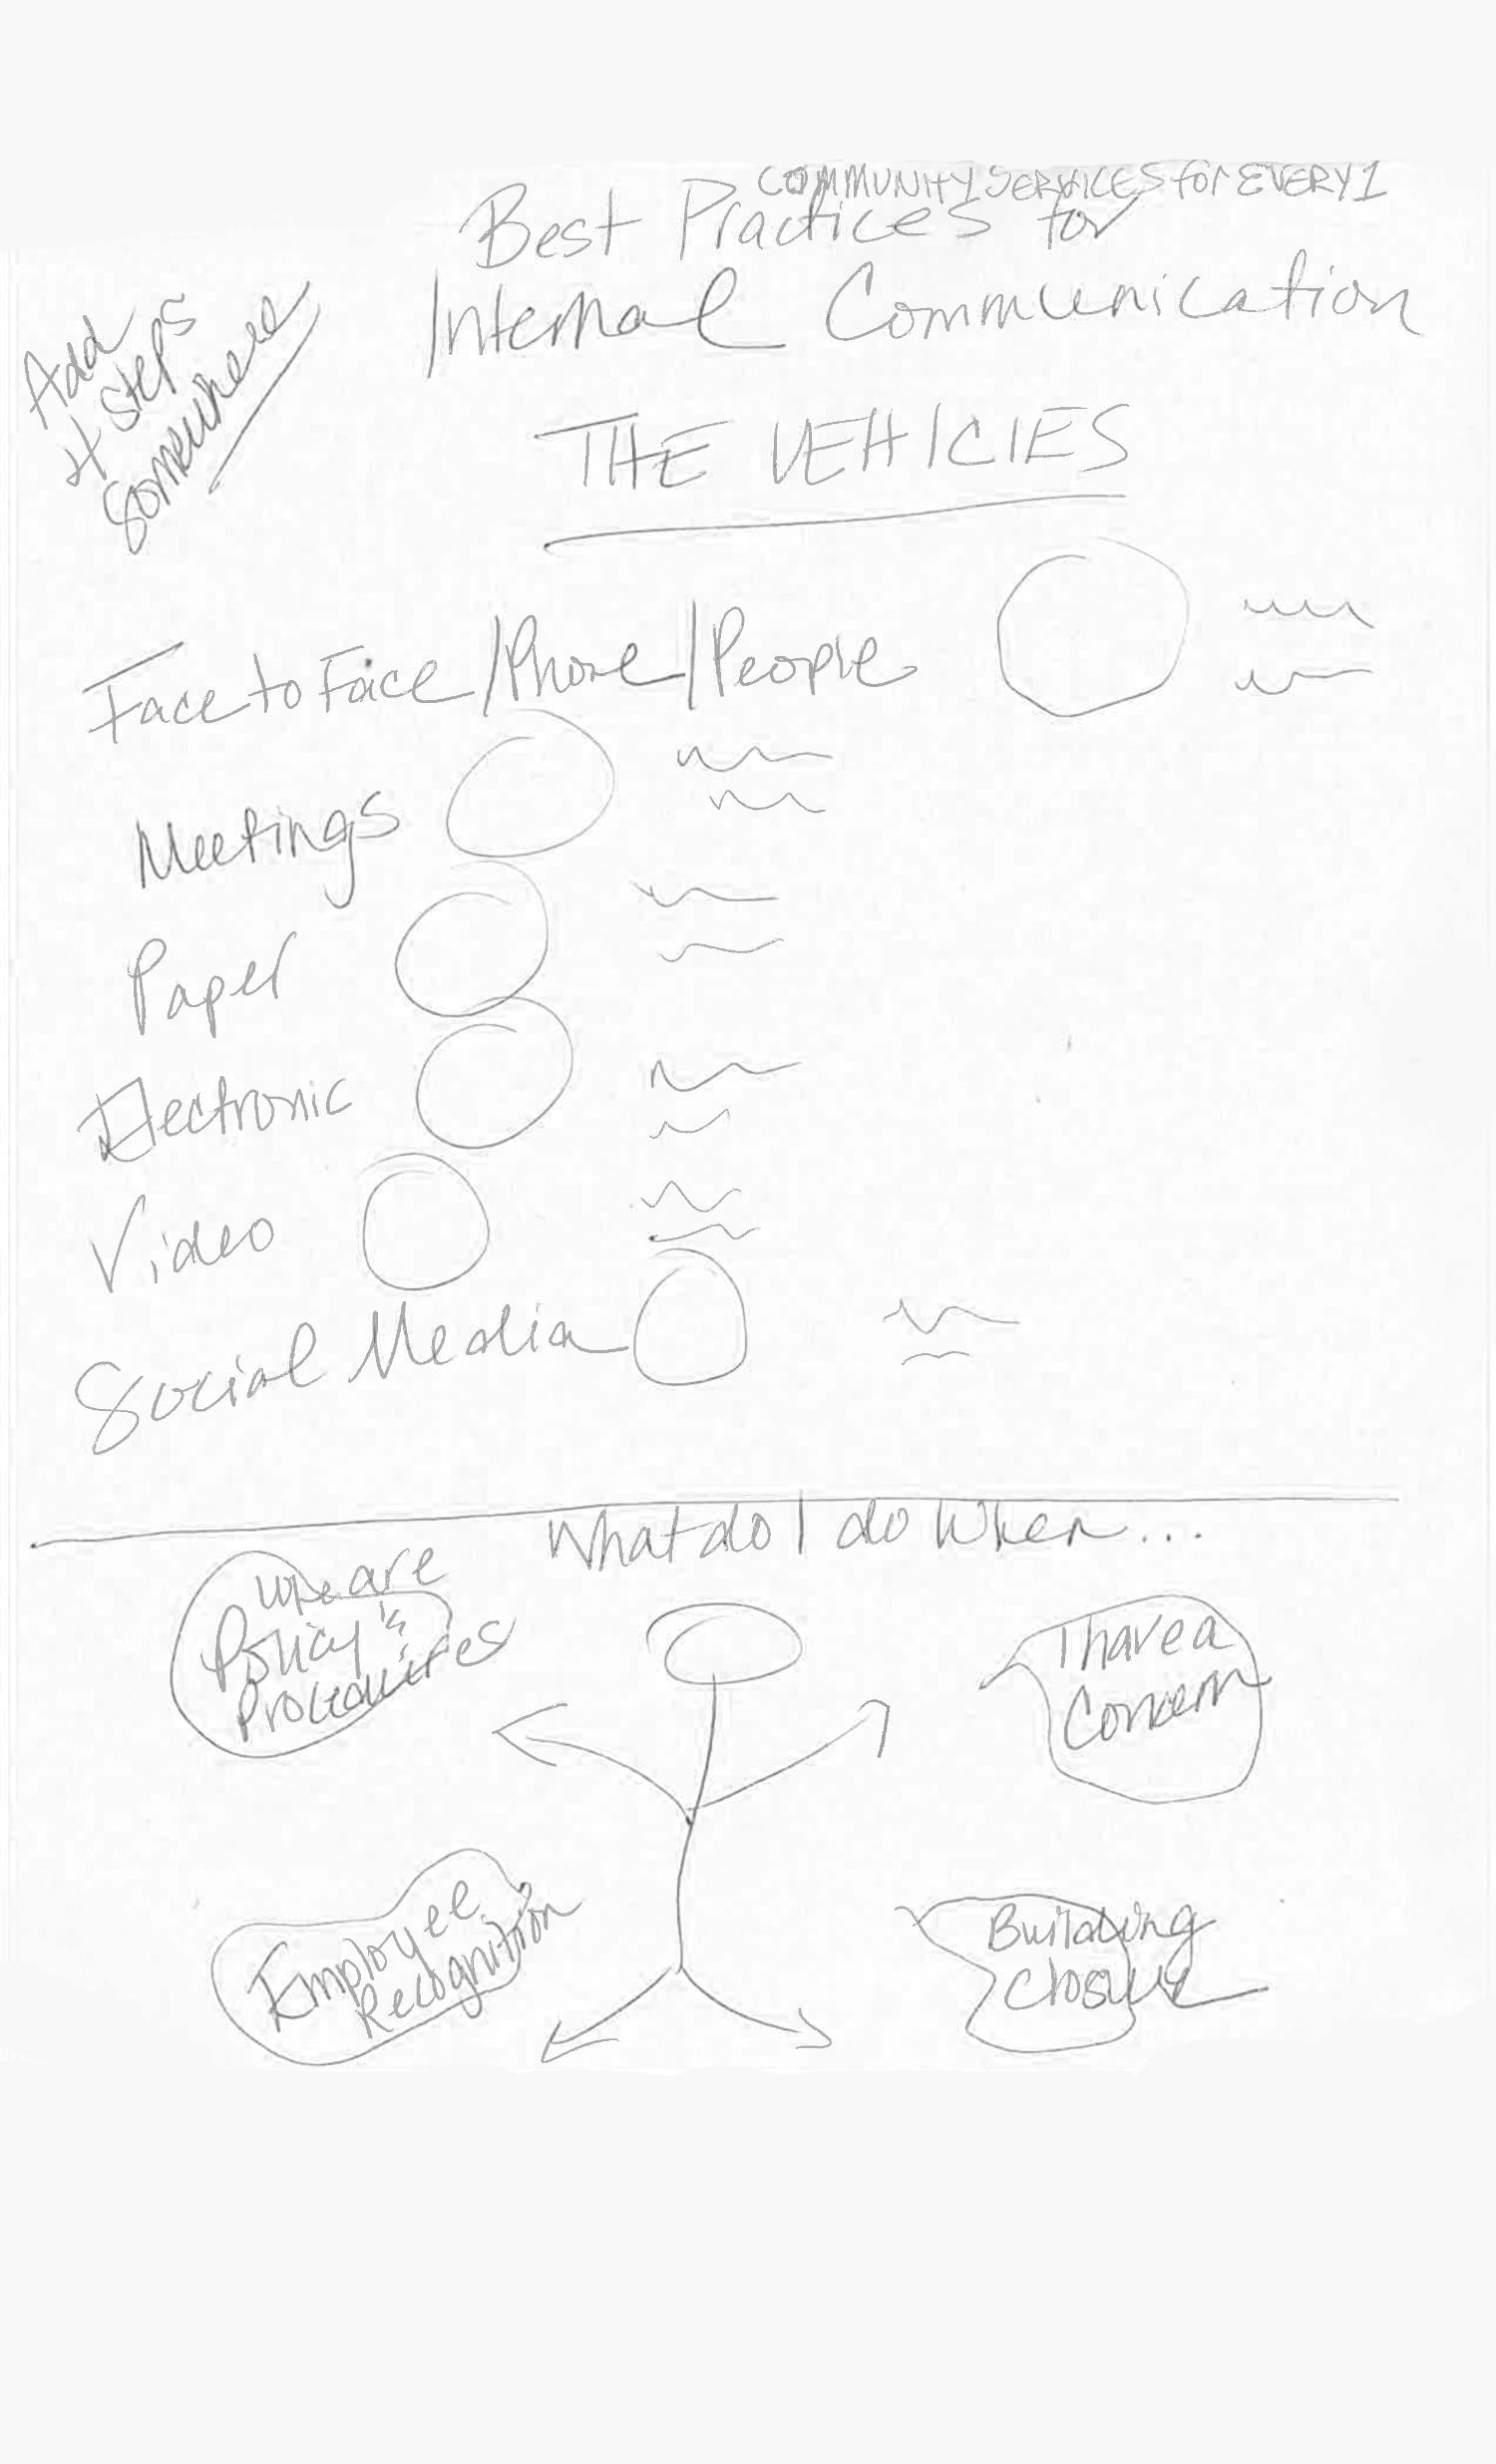 COMMUNITY SERVICES for EVERY1
Best Practices for
Internal Communication
Add
4 steps
somewhere
THE VEHICLES
Face to Face/Phone/People
Meetings
Paper
Electronic
Video
Social Media
What do I do when...
are
Policy's
Procedures
I have a
Concern
Employee
Recognition
Building
Closure